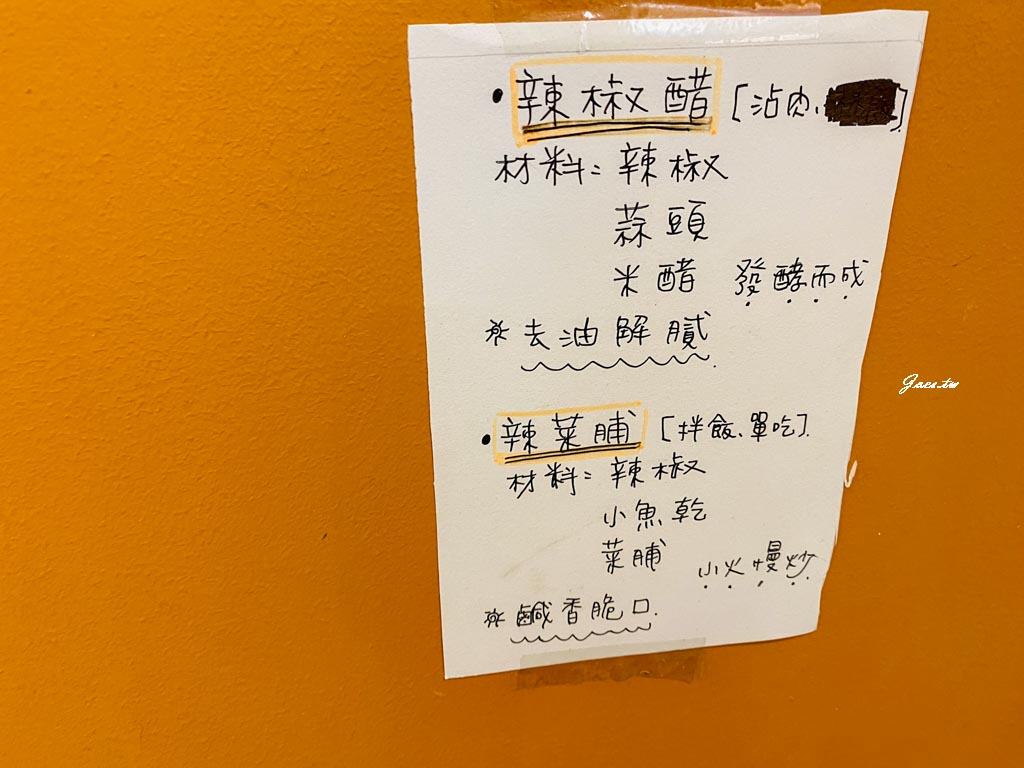 •辣椒醋 [沾肉、]
材料:辣椒
蒜頭
米醋 發酵而成
※去油解膩.
•辣菜脯 [拌飯、單吃].
材料:辣椒
小魚乾
菜脯 小火慢炒
※鹹香脆口.